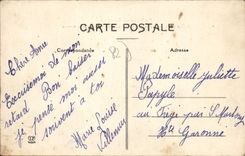 CARTE POSTALE
Correspondance
Adresse
Chère Amie
Excusez moi de mon
retard Bon baiser
je pense moi aussi
souvent à toi
Marie Louise
Mademoiselle Juliette
Papyle
au
par St Martory
Hte Garonne